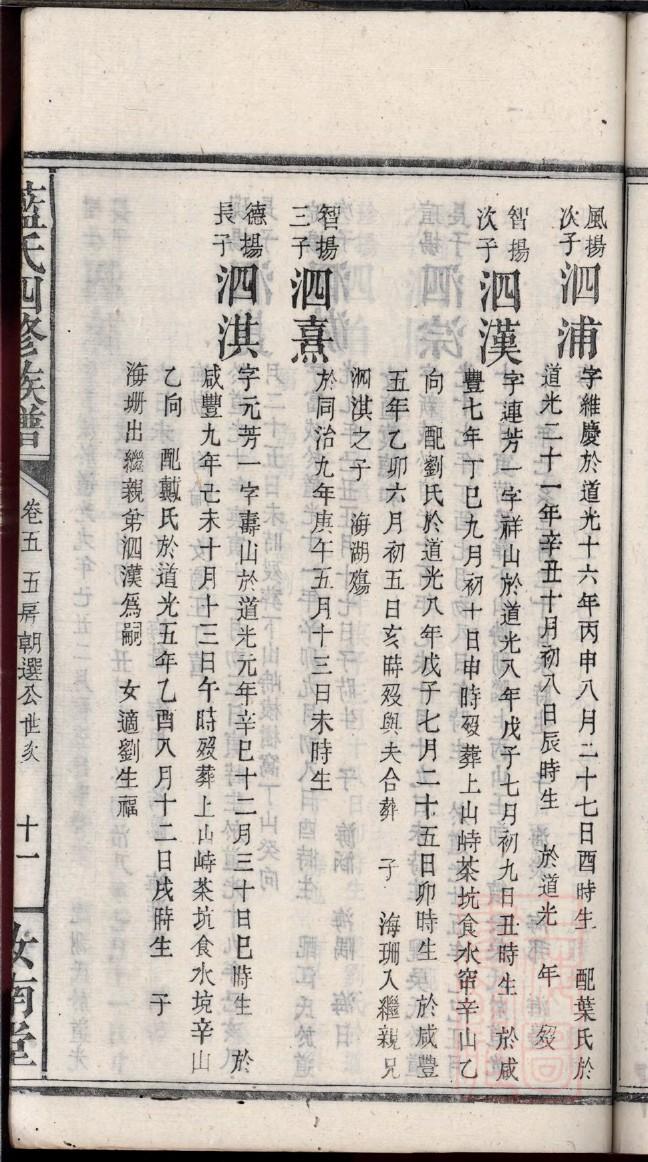 風揚
次子
泗浦
字維慶於道光十六年丙申八月二十七日酉時生 配葉氏於
道光二十一年辛丑十月初八日辰時生 於道光 年 歿
智揚
次子
泗漢
字連芳一字祥山於道光八年戊子七月初九日丑時生 於咸
豐七年丁巳九月初十日申時歿葬上山峙茶坑食水窂辛山乙
向 配劉氏於道光八年戊子七月二十五日卯時生 於咸豐
五年乙卯六月初五日亥時歿與夫合葬 子 海珊入繼親兄
泗淇之子 海湖殤
智揚
三子
泗熹
於同治九年庚午五月十三日未時生
德揚
長子
泗淇
字元芳一字壽山於道光元年辛巳十二月三十日巳時生 於
咸豐九年己未十月十三日午時歿葬上山峙茶坑食水坑辛山
乙向 配戴氏於道光五年乙酉八月十二日戌時生 子
海珊出繼親弟泗漢爲嗣 女適劉生福
藍氏四修族譜
卷五 五房朝選公世系
十一
汝南堂